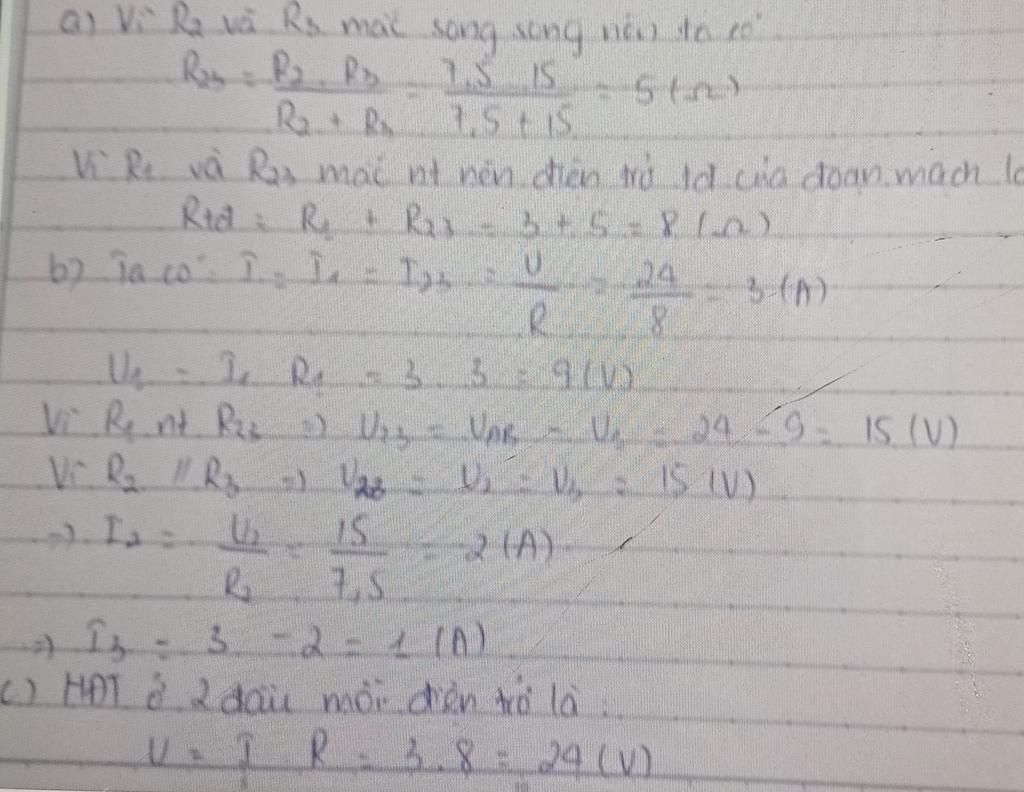 a) Vì R2 và R3 mắc song song nên ta có
R23 = R2 . R3 / R2 + R3 = 7,5 . 15 / 7,5 + 15 = 5 (Ω)
Vì R1 và R23 mắc nt nên điện trở tđ của đoạn mạch là
Rtđ = R1 + R23 = 3 + 5 = 8 (Ω)
b) Ta có: I = I1 = I23 = U / R = 24 / 8 = 3 (A)
U1 = I1 . R1 = 3 . 3 = 9 (V)
Vì R1 nt R23 => U23 = UAB - U1 = 24 - 9 = 15 (V)
Vì R2 // R3 => U23 = U2 = U3 = 15 (V)
=> I2 = U2 / R2 = 15 / 7,5 = 2 (A)
=> I3 = 3 - 2 = 1 (A)
c) HĐT ở 2 đầu mỗi điện trở là :
U = I . R = 3 . 8 = 24 (V)